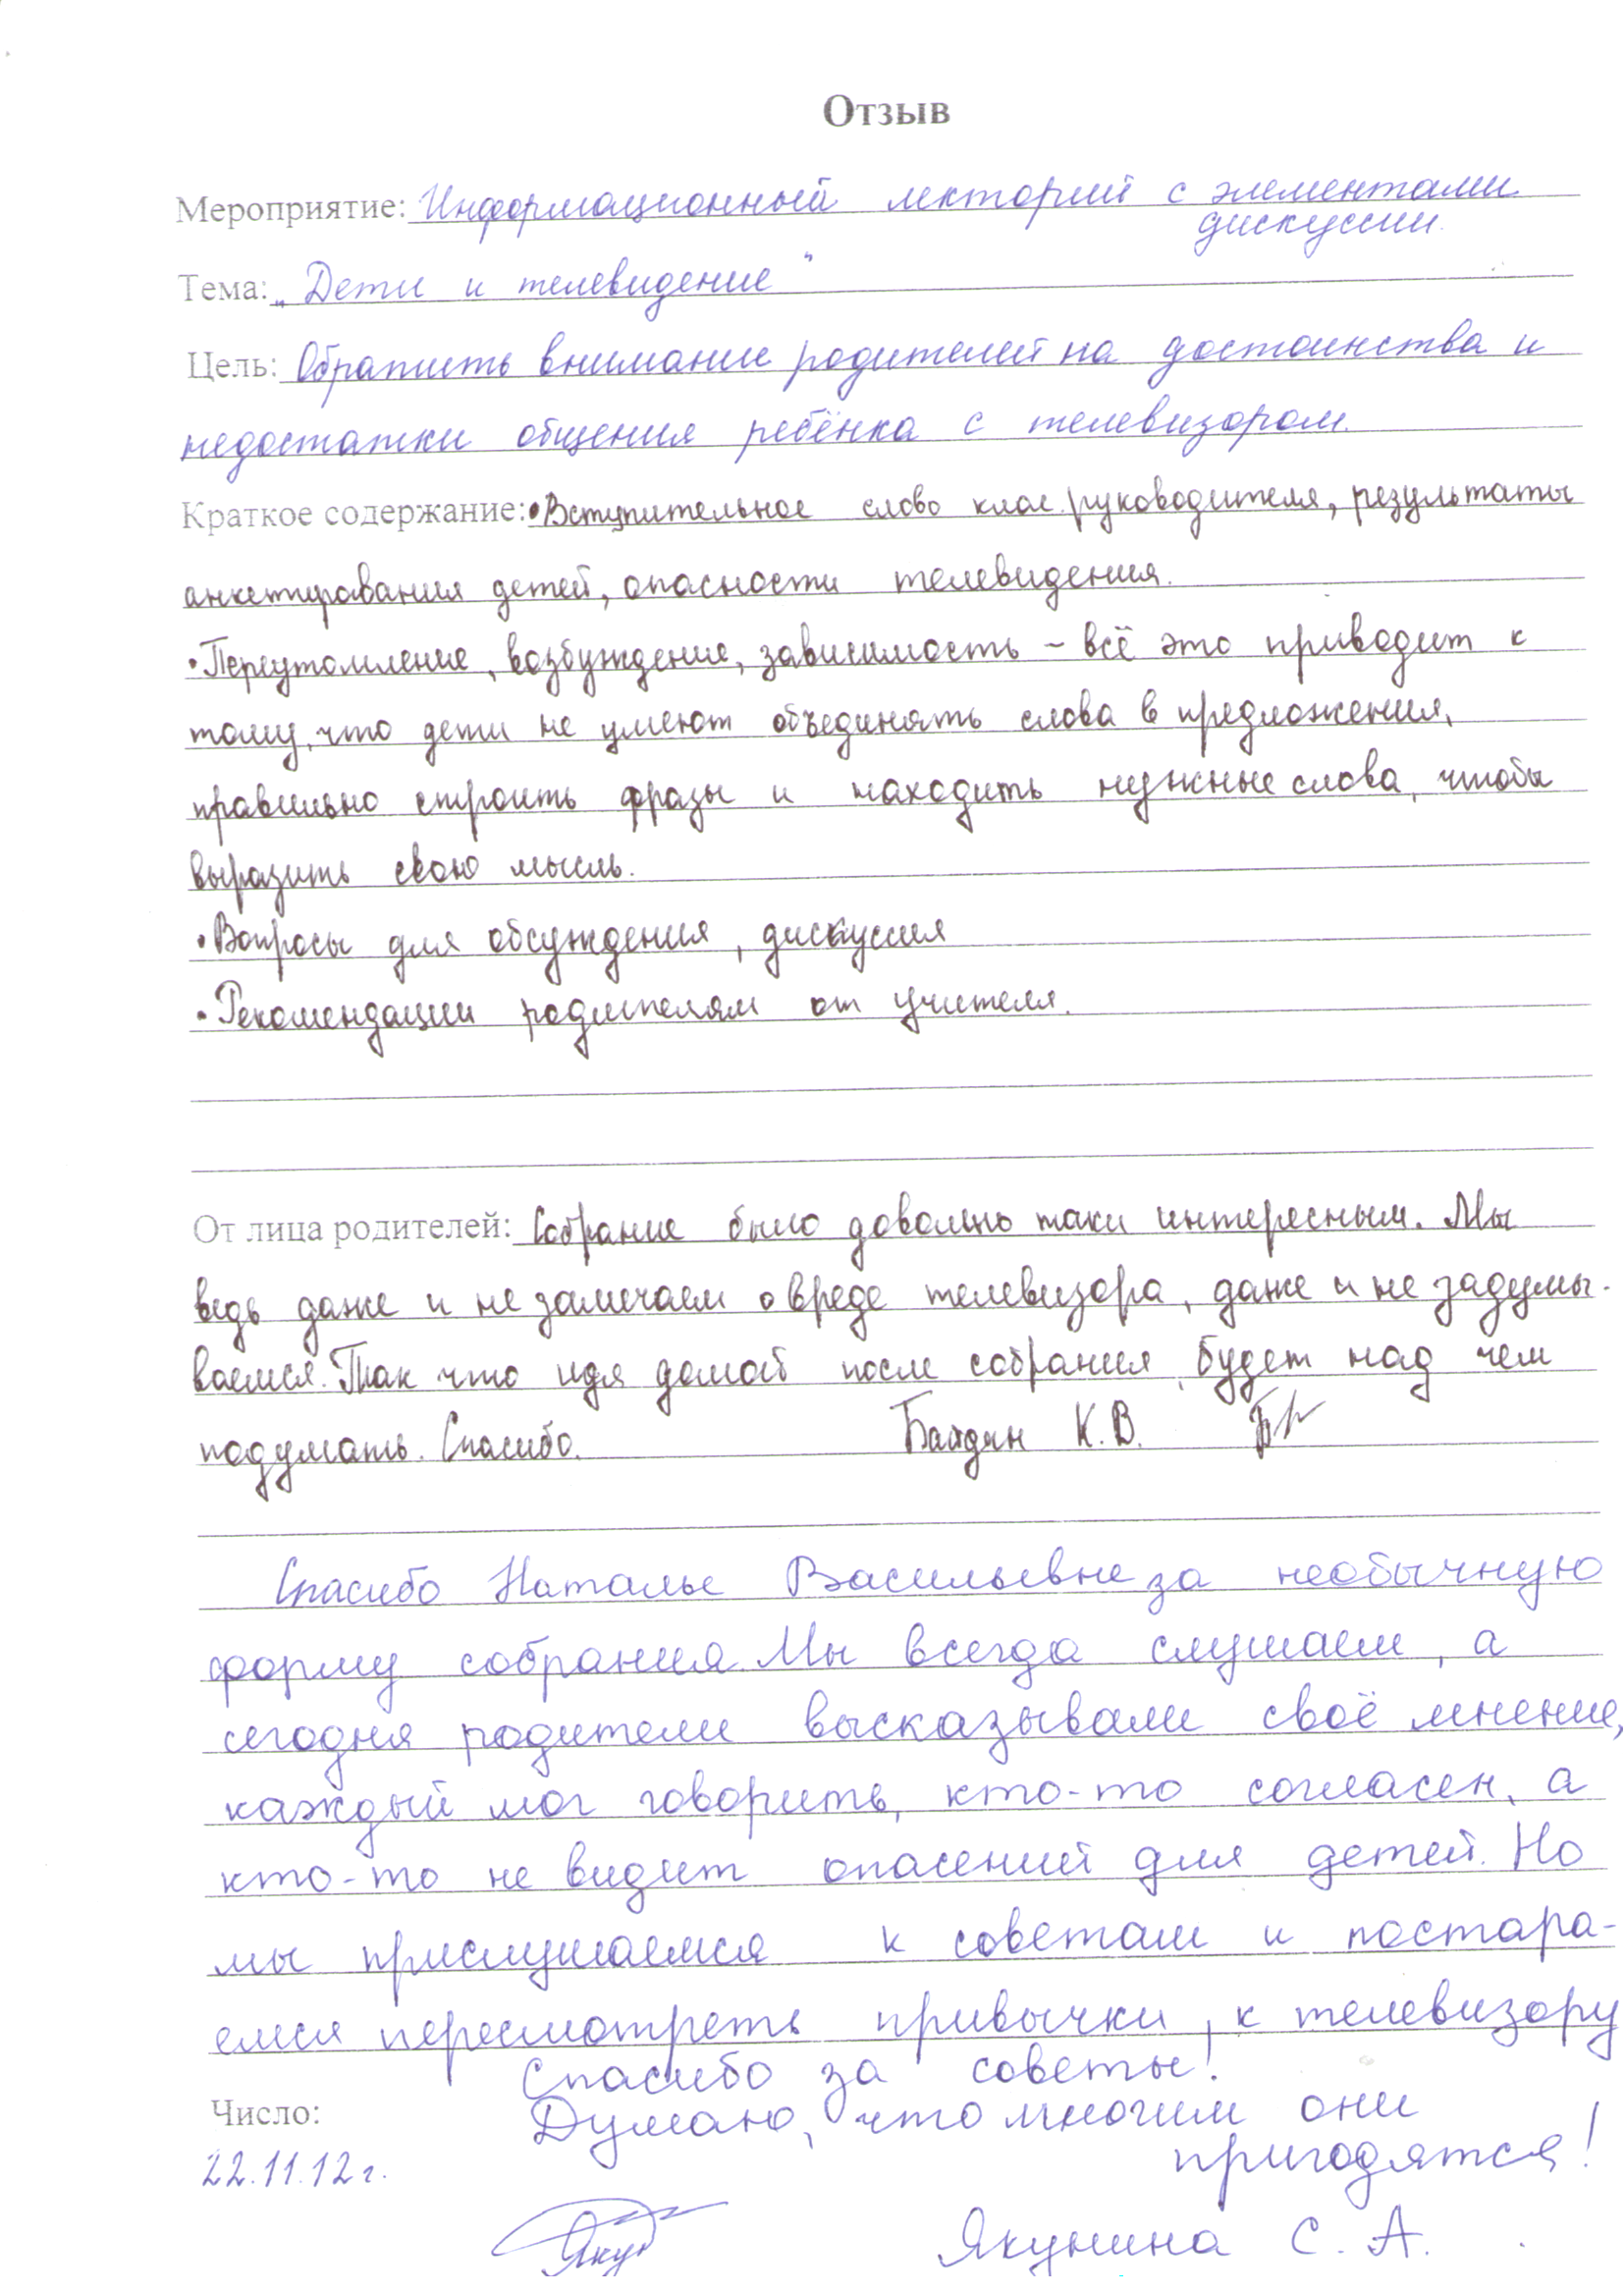 Отзыв
Мероприятие: Информационный лекторий с элементами
дискуссии.
Тема: „Дети и телевидение"
Цель: Обратить внимание родителей на достоинства и
недостатки общения ребёнка с телевизором.
Краткое содержание: •Вступительное слово клас. руководителя, результаты
анкетирования детей, опасности телевидения.
•Переутомление, возбуждение, зависимость – всё это приводит к
тому, что дети не умеют объединять слова в предложения,
правильно строить фразы и находить нужные слова, чтобы
выразить свою мысль.
•Вопросы для обсуждения, дискуссия
•Рекомендации родителям от учителя.
От лица родителей: Собрание было довольно таки интересным. Мы
ведь даже и не замечаем о вреде телевизора, даже и не задумы-
ваемся. Так что идя домой после собрания, будет над чем
подумать. Спасибо. Байдян К.В.
Спасибо Наталье Васильевне за необычную
форму собрания. Мы всегда слушаем, а
сегодня родители высказывали своё мнение,
каждый мог говорить, кто-то согласен, а
кто-то не видит опасений для детей. Но
мы прислушаемся к советам и постара-
емся пересмотреть привычки, к телевизору
Спасибо за советы!
Число: Думаю, что многим они
22.11.12г. пригодятся!
Якунина С. А.